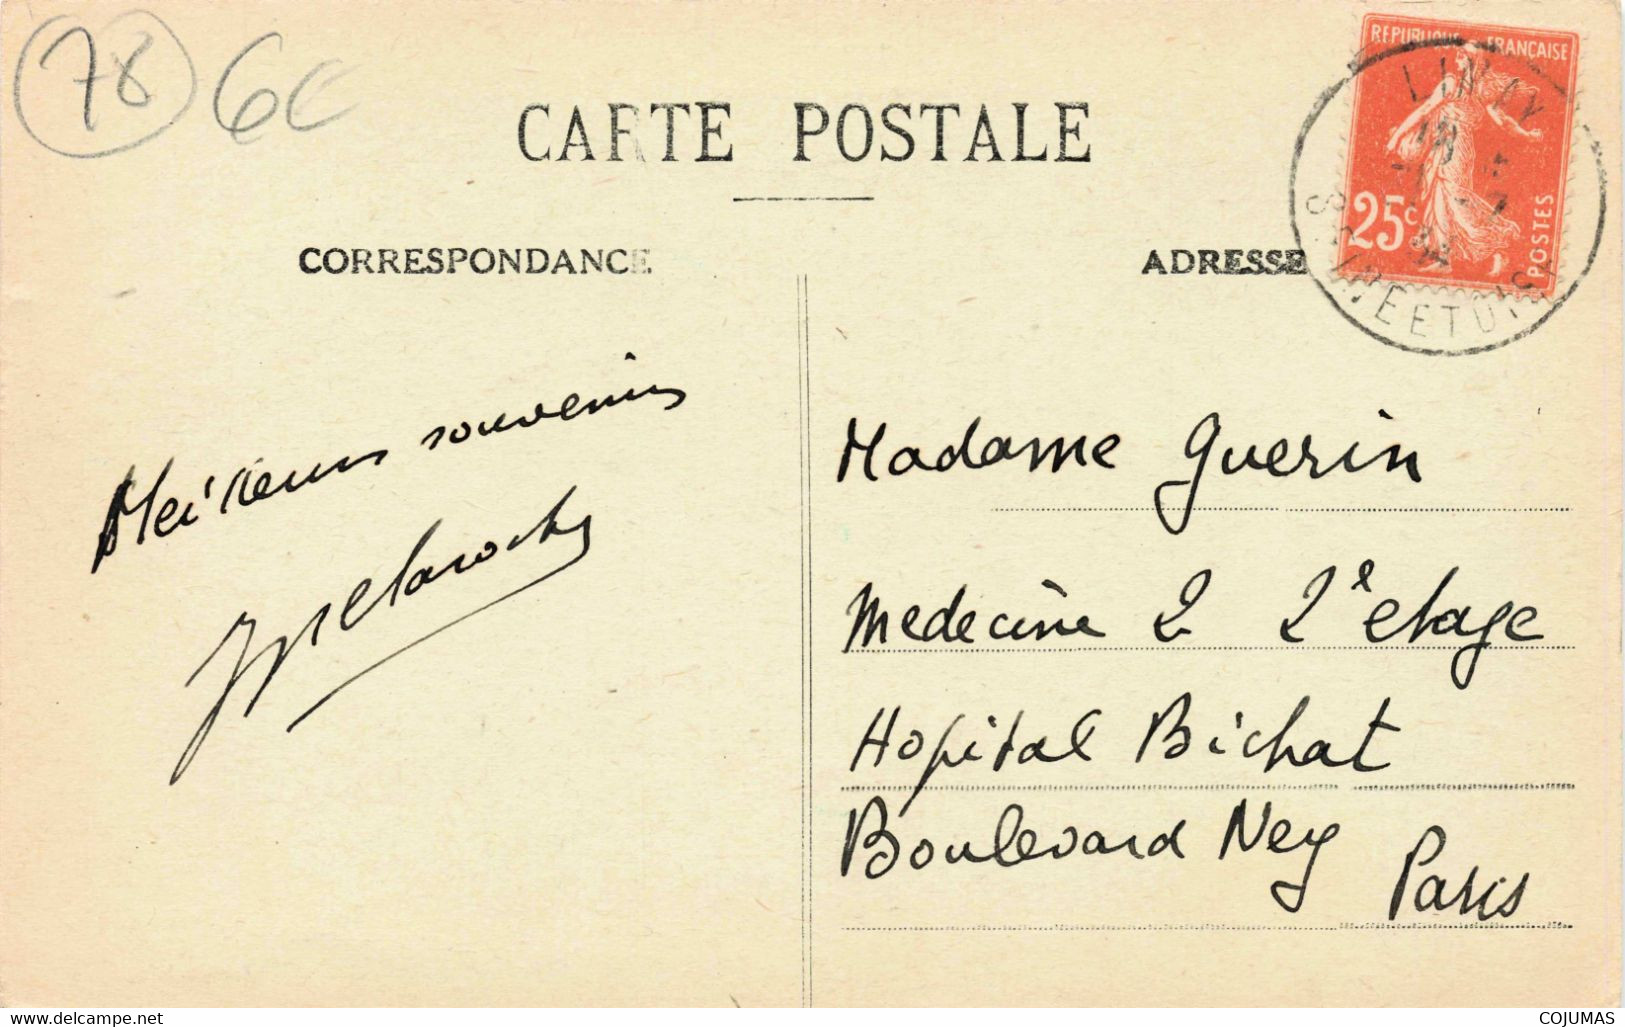 78 6€
CARTE POSTALE
CORRESPONDANCE
ADRESSE
REPUBLIQUE FRANÇAISE
25c
POSTES
LIMAY
SEINE ET OISE
Meilleurs souvenirs
Madame Guerin
Medecine 2 2e etage
Hopital Bichat
Boulevard Ney
Paris
www.delcampe.net
COJUMAS